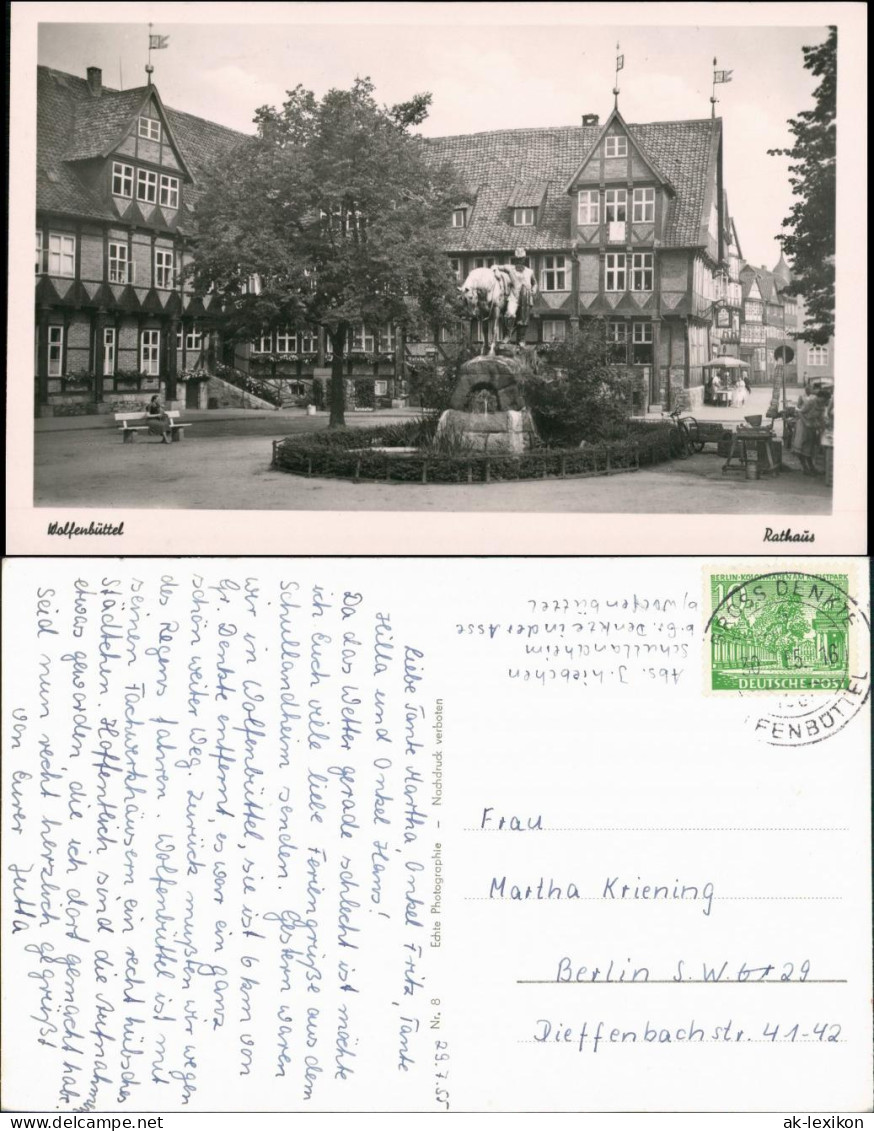 Wolfenbüttel
Rathaus
Liebe Tante Martha, Onkel Fritz, Tante
Hilla und Onkel Hans!
Da das Wetter gerade schlecht ist möchte
ich Euch viele liebe Feriengrüße aus dem
Schullandheim senden. Gestern waren
wir in Wolfenbüttel, sie ist 6 km von
Gr. Denkte entfernt, es war ein ganz
schön weiter Weg. Zurück mußten wir wegen
des Regens fahren. Wolfenbüttel ist mit
seinen Fachwerkhäusern ein recht hübsches
Städtchen. Hoffentlich sind die Aufnahmen
etwas geworden die ich dort gemacht habe.
Seid nun recht herzlich gegrüßt
von Eurer Jutta
Nr. 8 Echte Photographie – Nachdruck verboten
29.7.55
Abs. J. Liebchen
Schullandheim
b. Gr. Denkte in der Asse
b/Wolfenbüttel
BERLIN-KOLONNADEN AM KLEISTPARK
10
DEUTSCHE POST
GROSS DENKTE
WOLFENBÜTTEL
Frau
Martha Kriening
Berlin S.W. 29
Dieffenbachstr. 41-42
ak-lexikon